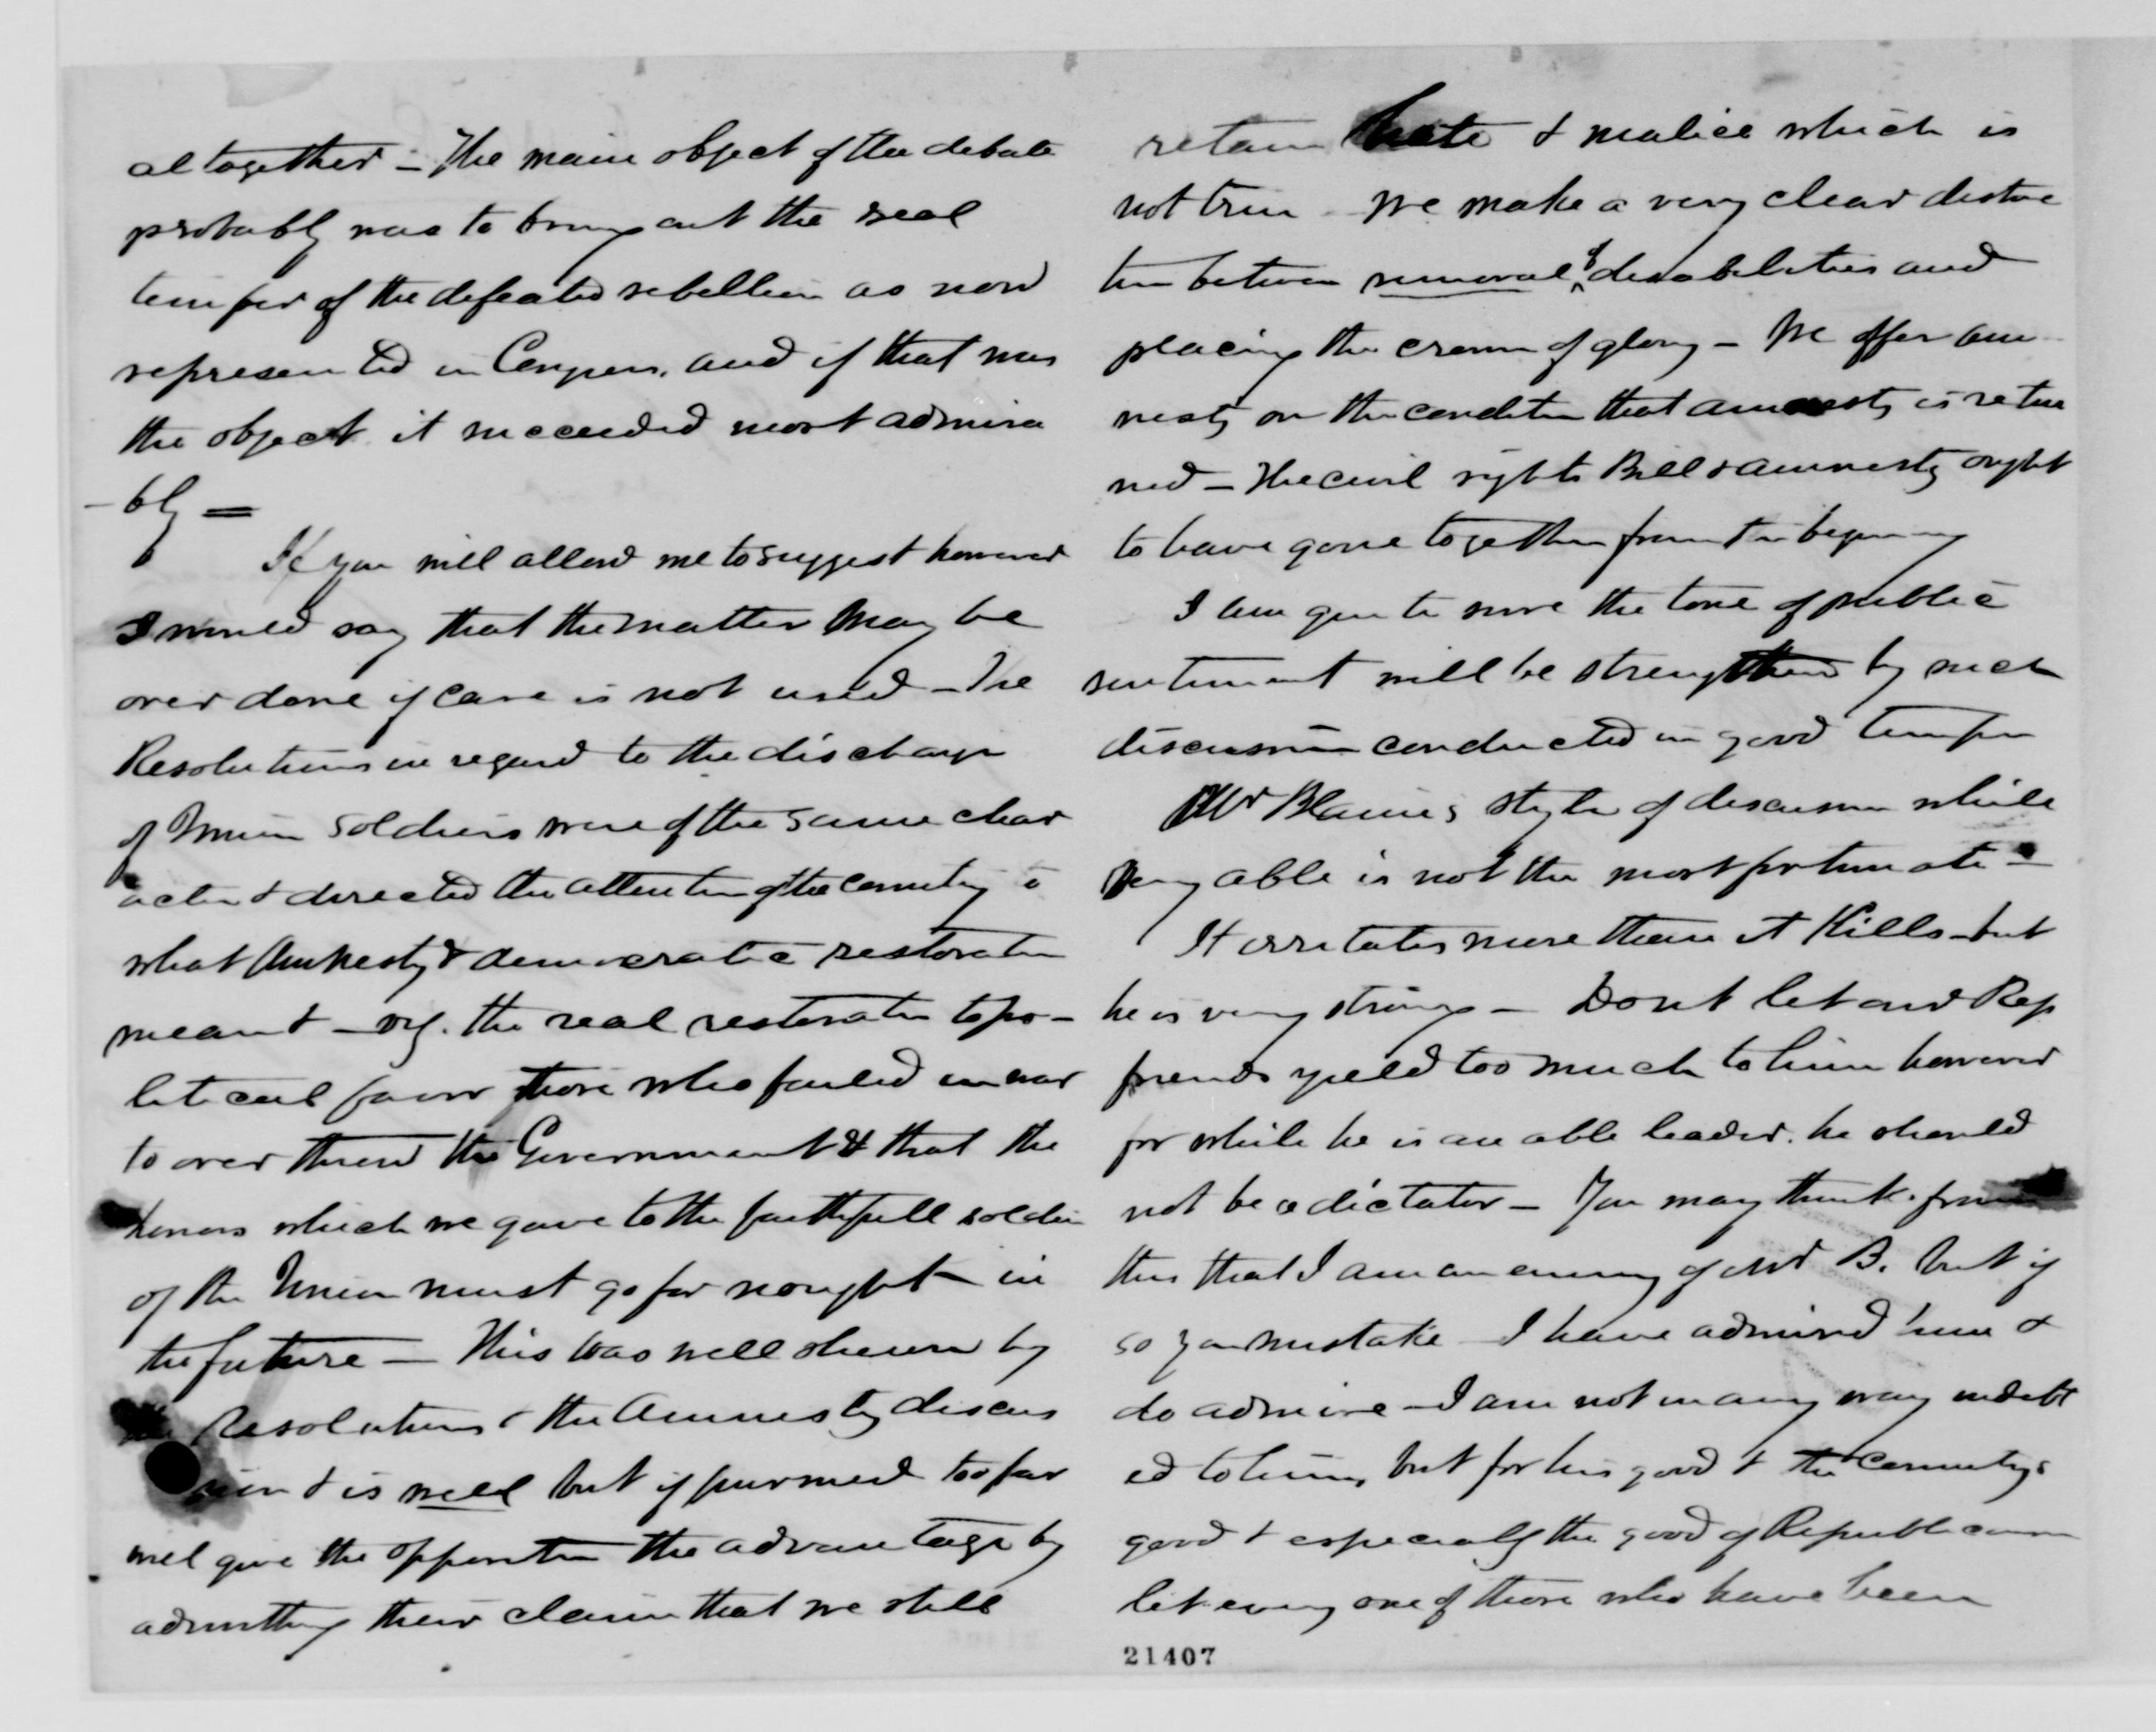 altogether – The main object of the debate
probably was to bring out the real
temper of the defeated rebellion as now
represented in Congress, and if that was
the object it succeeded most admira
– bly =
If you will allow me to suggest however
I would say that the matter may be
over done if care is not used – The
Resolutions in regard to the discharge
of Union soldiers were of the same char
acter & directed the attention of the country to
what Amnesty & democratic restoration
meant – viz. the real restoration to po–
litical favor those who failed in war
to over throw the Government & that the
honors which we gave to the faithfull soldier
of the Union must go for nought in
the future – This was well shown by
the Resolutions & the Amnesty discus
sion & is well but if pursued too far
will give the opposition the advantage by
admitting their claim that we still
retain hate & malice which is
not true We make a very clear distinc
tion between removal of disabilities and
placing the crown of glory – We offer am
nesty on the condition that amnesty is retur
ned – The civil rights Bill & amnesty ought
to have gone together from the beginning
I am quite sure the tone of public
sentiment will be strengthened by such
discussion conducted in good temper
Mr Blaine's style of discussion while
very able is not the most fortunate –
It irritates more than it Kills – but
he is very strong – Dont let our Rep
friends yield too much to him however
for while he is an able leader. he should
not be a dictator – You may think from
this that I am an enemy of Mr B. but if
so you mistake I have admired him &
do admire – I am not in any way indebt
ed to him, but for his good & the countrys
good & especialy the good of Republicanism
let every one of those who have been
21407